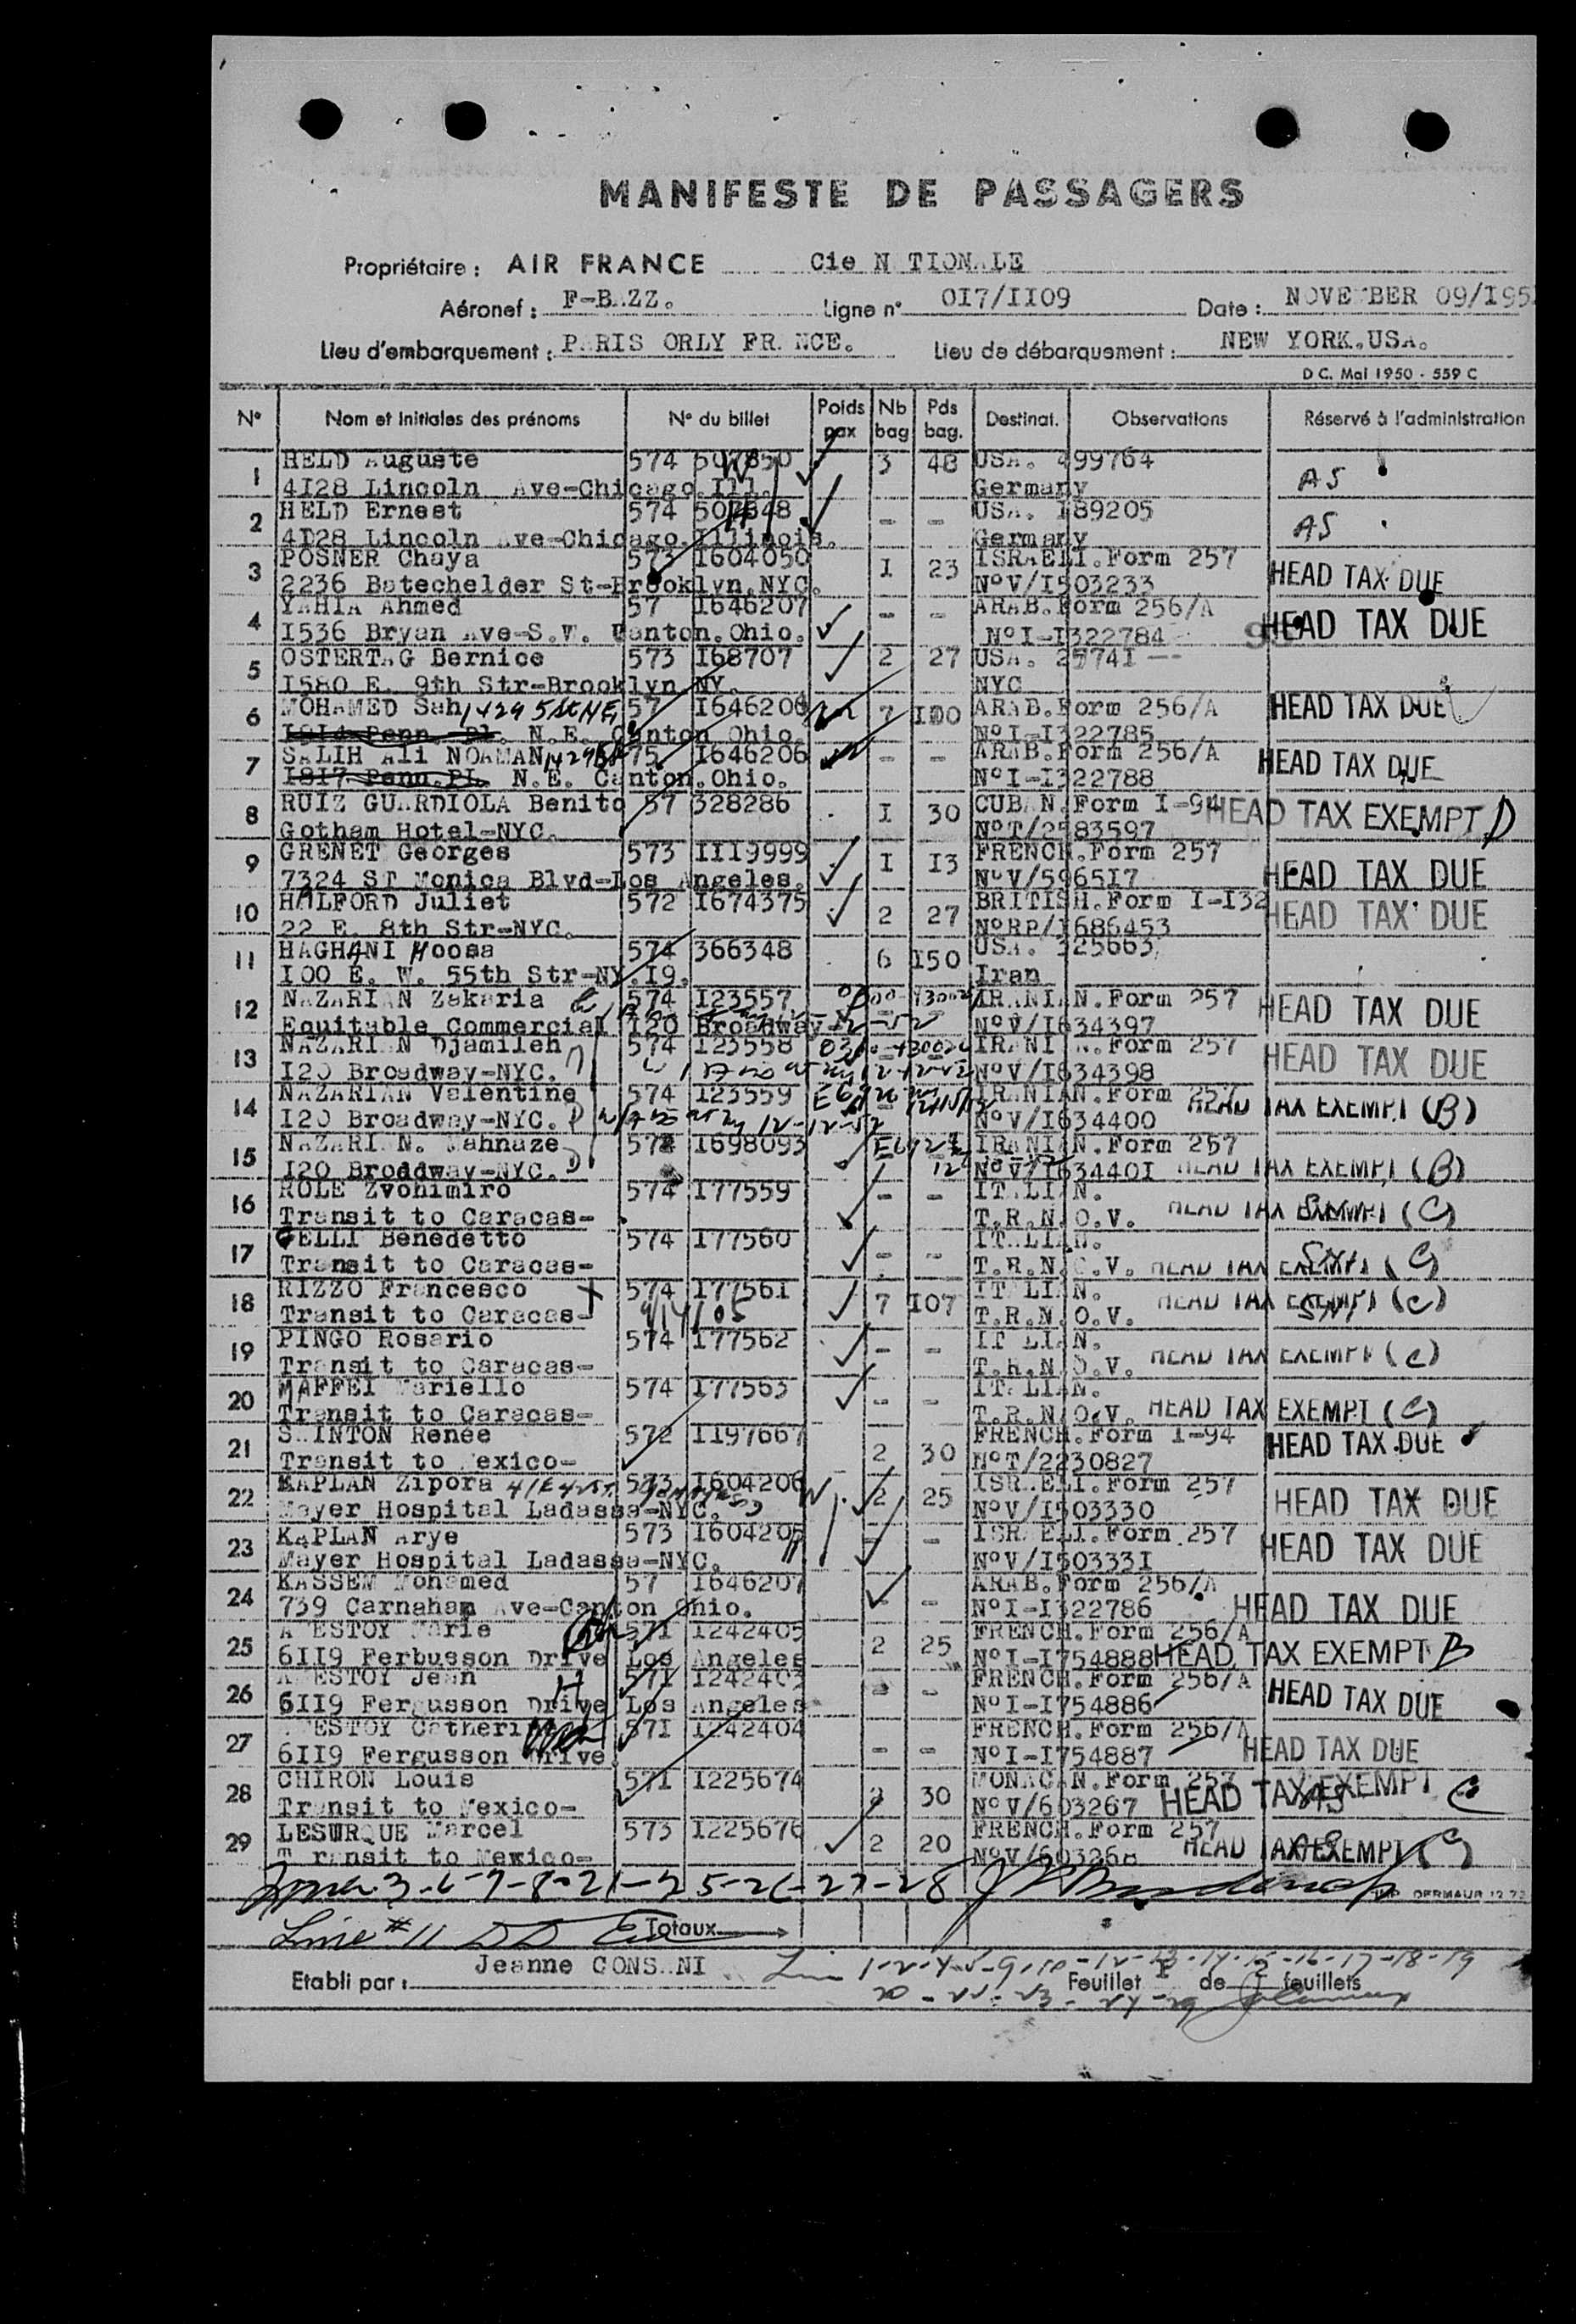 MANIFESTE DE PASSAGERS
Propriétaire : AIR FRANCE Cie N TIONALE
Aéronef : F-BAZZ. Ligne n° OI7/II09 Date : NOVEMBER 09/195
Lieu d'embarquement : PARIS ORLY FRANCE. Lieu de débarquement : NEW YORK.USA.
D C. Mai 1950 - 559 C
N° Nom et Initiales des prénoms N° du billet Poids pax Nb bag Pds bag. Destinat. Observations Réservé à l'administration
1 HELD Auguste 574 507850 3 48 USA. 499764
4I28 Lincoln Ave-Chicago.Ill. Germany AS
2 HELD Ernest 574 507848 - - USA. I89205
4I28 Lincoln Ave-Chicago.Illinois. Germany AS
3 POSNER Chaya 573 I604050 I 23 ISRAELI.Form 257
2236 Batechelder St-Brooklyn.NYC. N°V/I503233 HEAD TAX DUE
4 YAHIA Ahmed 57 I646207 - - ARAB.Form 256/A
I536 Bryan Ave-S.W. Canton.Ohio. N°I-I322784 HEAD TAX DUE
5 OSTERTAG Bernice 573 I68707 2 27 USA. 25741
I580 E. 9th Str-Brooklyn.NY. NYC
6 MOHAMED Sah 1429 5 St NE 57 I646206 7 I00 ARAB.Form 256/A
I814 Penn. Pl. N.E. Canton Ohio. N°I-I322785 HEAD TAX DUE
7 SALIH Ali NOAMAN 1429 75 I646206 - - ARAB.Form 256/A
I817 Penn.Pl. N.E. Canton.Ohio. N°I-I322788 HEAD TAX DUE
8 RUIZ GUARDIOLA Benito 57 328286 I 30 CUBAN.Form I-94
Gotham Hotel-NYC. N°T/2583597 HEAD TAX EXEMPT D
9 GRENET Georges 573 III9999 I I3 FRENCH.Form 257
7324 ST Monica Blvd-Los Angeles. N°V/5965I7 HEAD TAX DUE
10 HALFORD Juliet 572 I674375 2 27 BRITISH.Form I-I32
22 E. 8th Str-NYC. N°RP/I686453 HEAD TAX DUE
11 HAGHANI Moosa 574 366348 6 I50 USA. 325663
I00 E. W. 55th Str-NY.I9. Iran
12 NAZARIAN Zakaria 574 I23557 IRANIAN.Form 257
Equitable Commercial I20 Broadway N°V/I634397 HEAD TAX DUE
13 NAZARIAN Djamileh 574 I23558 IRANIAN.Form 257
I20 Broadway-NYC. N°V/I634398 HEAD TAX DUE
14 NAZARIAN Valentine 574 I23559 IRANIAN.Form 257
I20 Broadway-NYC. 12-12-52 N°V/I634400 HEAD TAX EXEMPT (B)
15 NAZARIAN. Mahnaze 574 I698093 IRANIAN.Form 257
I20 Broadway-NYC. N°V/I63440I HEAD TAX EXEMPT (B)
16 ROLE Zvonimiro 574 I77559 - - ITALIAN.
Transit to Caracas- T.R.N.O.V. HEAD TAX EXEMPT (C)
17 GELLI Benedetto 574 I77560 - - ITALIAN.
Transit to Caracas- T.R.N.O.V. HEAD TAX EXEMPT (C)
18 RIZZO Francesco X 574 I77561 7 I07 ITALIAN.
Transit to Caracas- T.R.N.O.V. HEAD TAX EXEMPT (C)
19 PINGO Rosario 574 I77562 - - ITALIAN.
Transit to Caracas- T.R.N.O.V. HEAD TAX EXEMPT (C)
20 MAFFEI Mariello 574 I77563 - - ITALIAN.
Transit to Caracas- T.R.N.O.V. HEAD TAX EXEMPT (C)
21 SAINTON Renée 572 II97667 2 30 FRENCH.Form I-94
Transit to Mexico- N°T/2230827 HEAD TAX DUE
22 KAPLAN Zipora 573 I604206 2 25 ISRAELI.Form 257
Mayer Hospital Ladassa-NYC. N°V/I503330 HEAD TAX DUE
23 KAPLAN Arye 573 I604205 - - ISRAELI.Form 257
Mayer Hospital Ladassa-NYC. N°V/I50333I HEAD TAX DUE
24 KASSEM Mohamed 57 I646207 - - ARAB.Form 256/A
739 Carnahan Ave-Canton Ohio. N°I-I322786 HEAD TAX DUE
25 AMESTOY Marie 571 I242405 2 25 FRENCH.Form 256/A
6II9 Ferbusson Drive Los Angeles N°I-I754888 HEAD TAX EXEMPT B
26 AMESTOY Jean 571 I242403 - - FRENCH.Form 256/A
6II9 Fergusson Drive Los Angeles N°I-I754886 HEAD TAX DUE
27 AMESTOY Catheri 571 I242404 - - FRENCH.Form 256/A
6II9 Fergusson Drive. N°I-I754887 HEAD TAX DUE
28 CHIRON Louis 571 I225674 3 30 MONACAN.Form 257
Transit to Mexico- N°V/603267 HEAD TAX EXEMPT C
29 LESURQUE Marcel 573 I225676 2 20 FRENCH.Form 257
Transit to Mexico- N°V/603268 HEAD TAX EXEMPT (C)
3-6-7-8-21-25-26-27-28
Line #11 Totaux
Etabli par : Jeanne CONSANI
1-2-4-5-9-10-12-13-14-15-16-17-18-19
Feuillet I de 2 feuillets